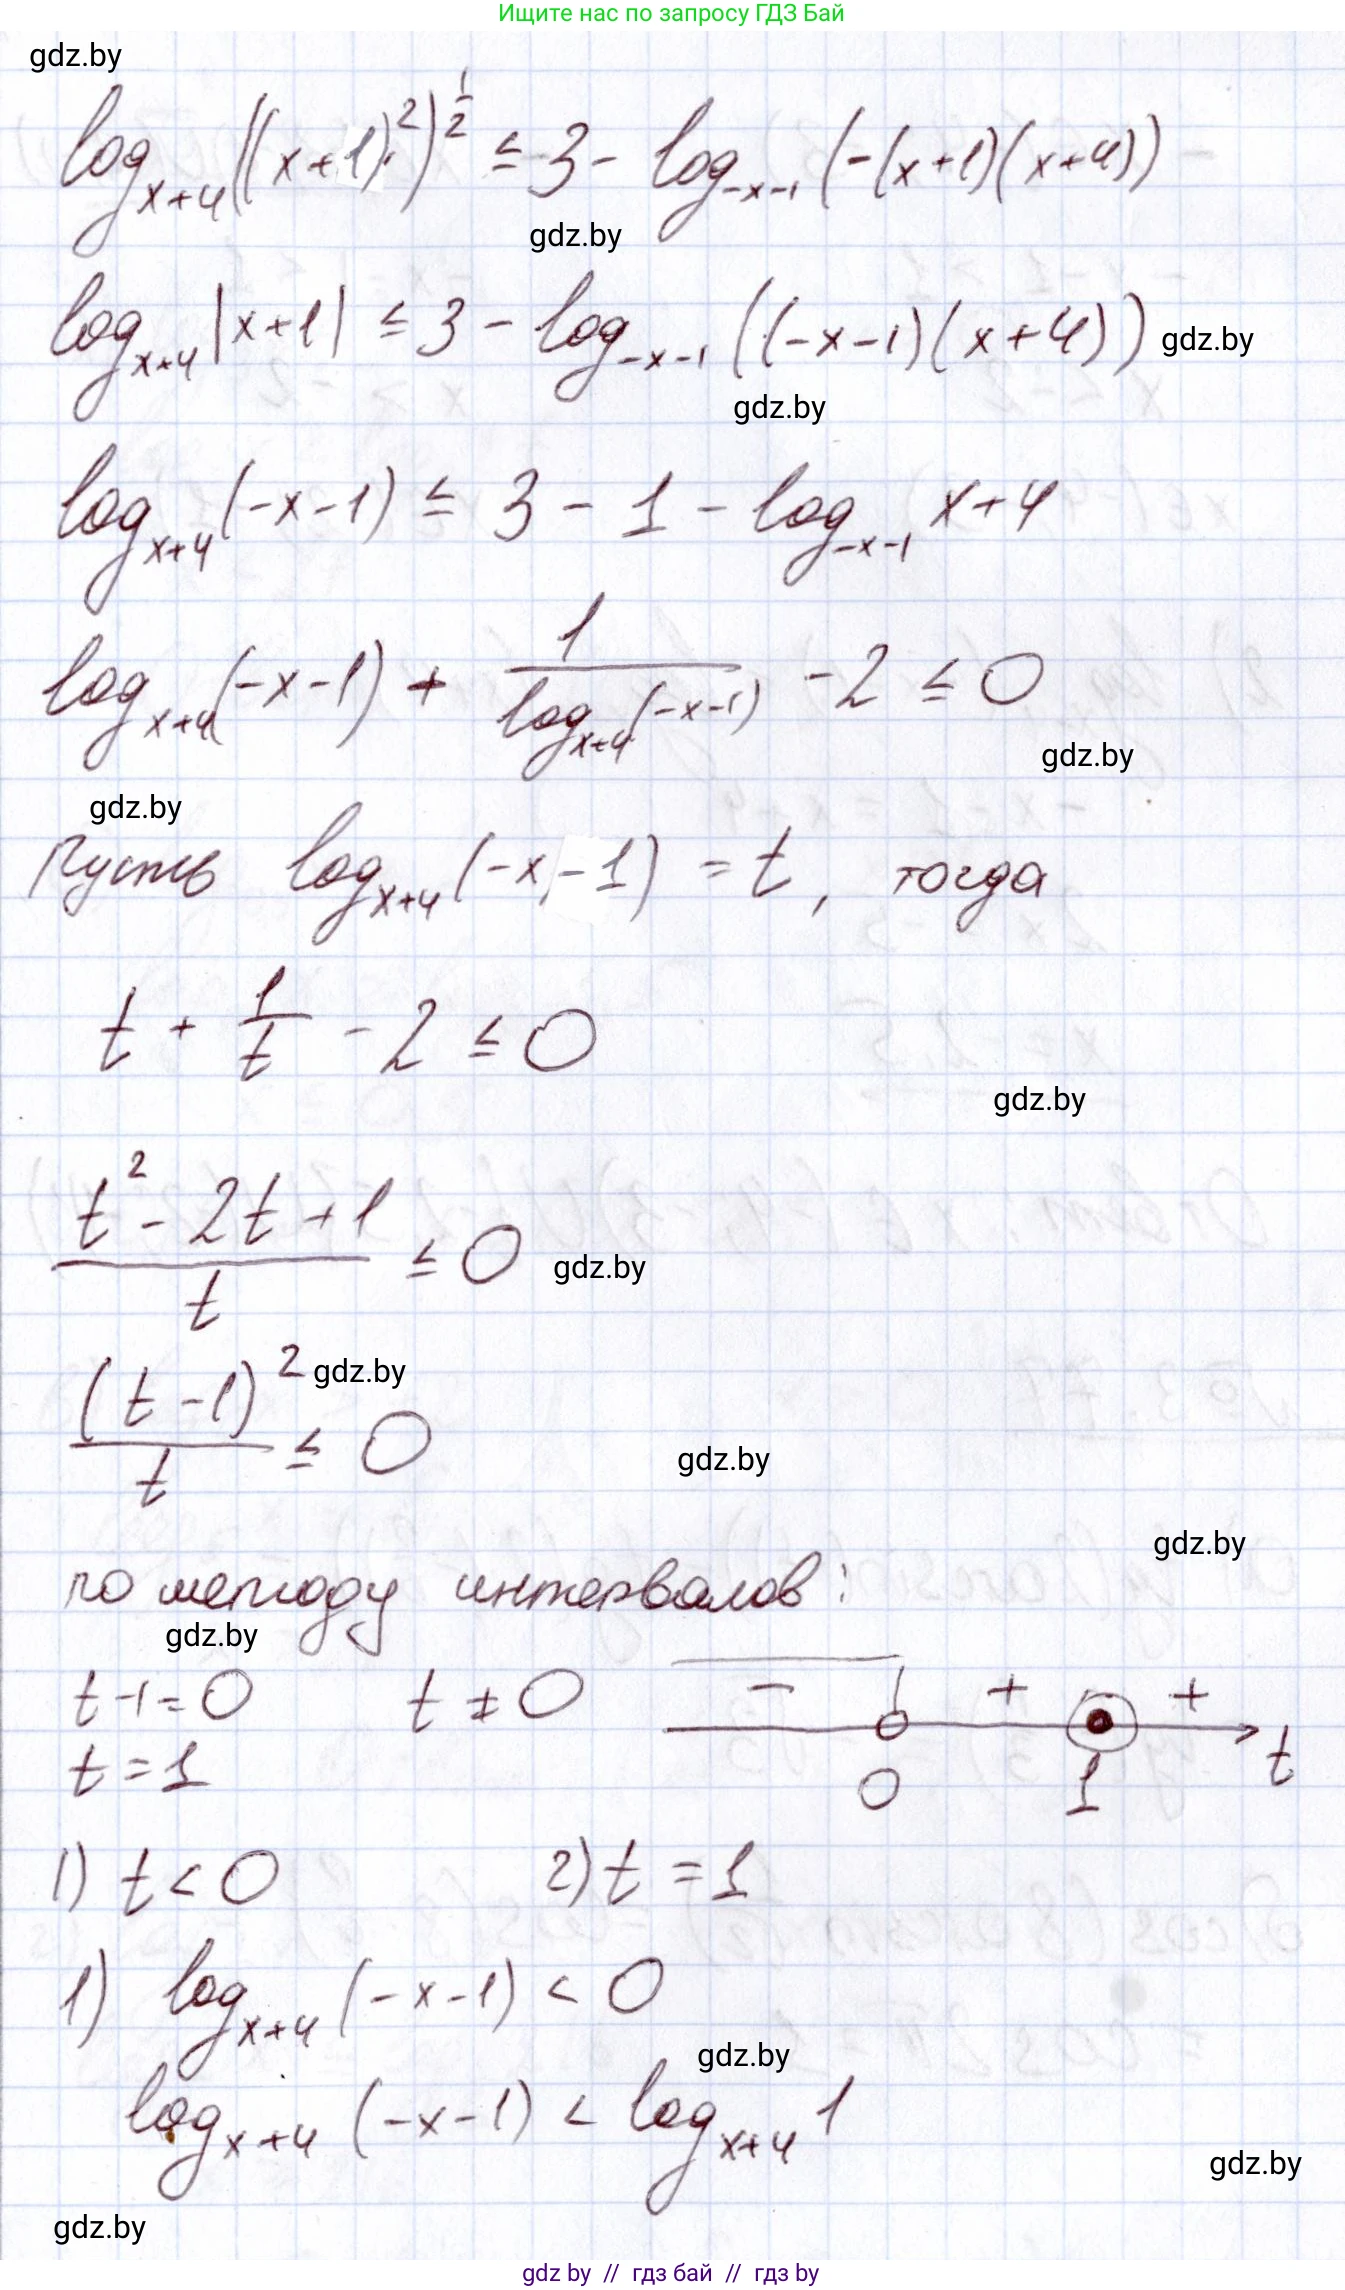 Ищите нас по запросу ГДЗ Бай
gdz.by
log_{x+4}((x+1)^2)^{1/2} ≤ 3 - log_{-x-1}(-(x+1)(x+4))
gdz.by
log_{x+4}|x+1| ≤ 3 - log_{-x-1}((-x-1)(x+4))
gdz.by
gdz.by
log_{x+4}(-x-1) ≤ 3 - 1 - log_{-x-1} x+4
log_{x+4}(-x-1) + 1/log_{x+4}(-x-1) - 2 ≤ 0
gdz.by
gdz.by
Пусть log_{x+4}(-x-1) = t, тогда
t + 1/t - 2 ≤ 0
gdz.by
(t^2 - 2t + 1)/t ≤ 0
gdz.by
(t-1)^2/t ≤ 0
gdz.by
gdz.by
gdz.by
по методу интервалов:
gdz.by
t-1=0 t ≠ 0 - + +
t=1 0 1 t
1) t < 0 2) t = 1
1) log_{x+4}(-x-1) < 0
gdz.by
log_{x+4}(-x-1) < log_{x+4} 1
gdz.by
gdz.by
gdz by // гдз бай // гдз by